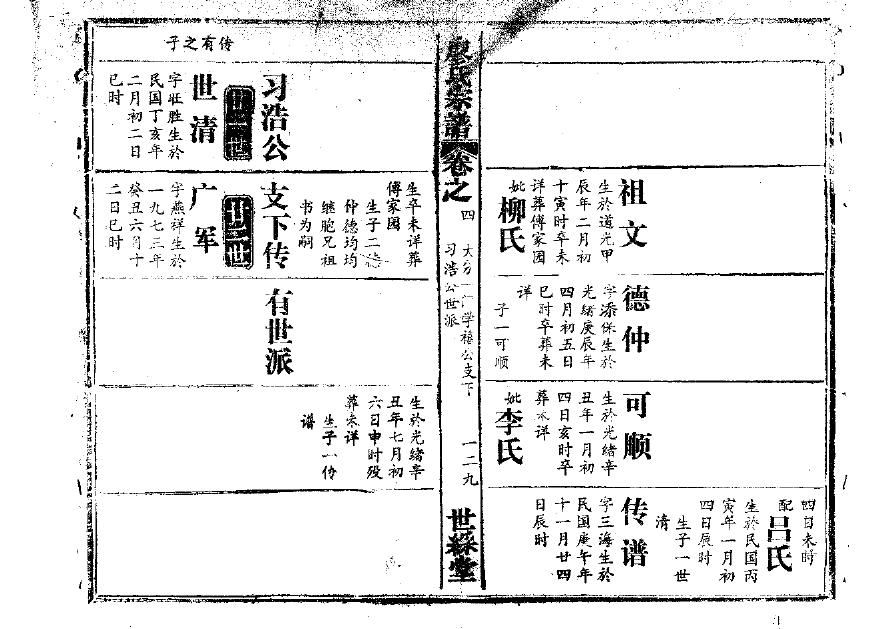 四日未时
配
吕氏
生於民国丙
寅年一月初
四日辰时
生子一世
清
祖文
生於道光甲
辰年二月初
十寅时卒未
详葬傅家园
妣
柳氏
德仲
字添保生於
光绪庚辰年
四月初五日
巳时卒葬未
详
子一可顺
可顺
生於光绪辛
丑年一月初
四日亥时卒
葬未详
妣
李氏
传谱
字三海生於
民国庚午年
十一月廿四
日辰时
廖氏宗谱
卷之四
学禧公支下
习浩公世派
一二九
世綵堂
生卒未详葬
傅家园
生子二德
仲德均均
继胞兄祖
书为嗣
生於光绪辛
丑年七月初
六日申时殁
葬未详
生子一传
谱
习浩公
支下传
有世派
传有之子
世清
字旺胜生於
民国丁亥年
二月初二日
巳时
广军
字燕祥生於
一九七三年
癸丑六月十
二日巳时